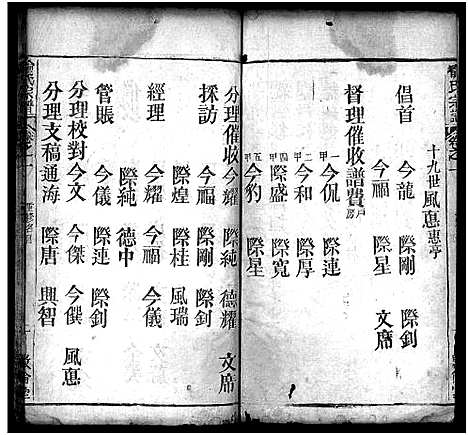 十九世風憓惠亭
倡首
今龍 際剛 際釗
今福 際星 文席
督理催收譜費戶房
甲一 今侃 際連
甲二 今和 際厚
甲四 際盛 際寬
甲五 今豹 際星
分理催收 際純 德耀 文席
採訪 今福 際剛 際釗
際煌 際桂 風瑞
經理 今耀 今福 今儀
際純 德中
管賬 今儀 際連 際釗
分理校對 今文 今傑 今鏌 風憓
分理支稿 通海 際唐 興智